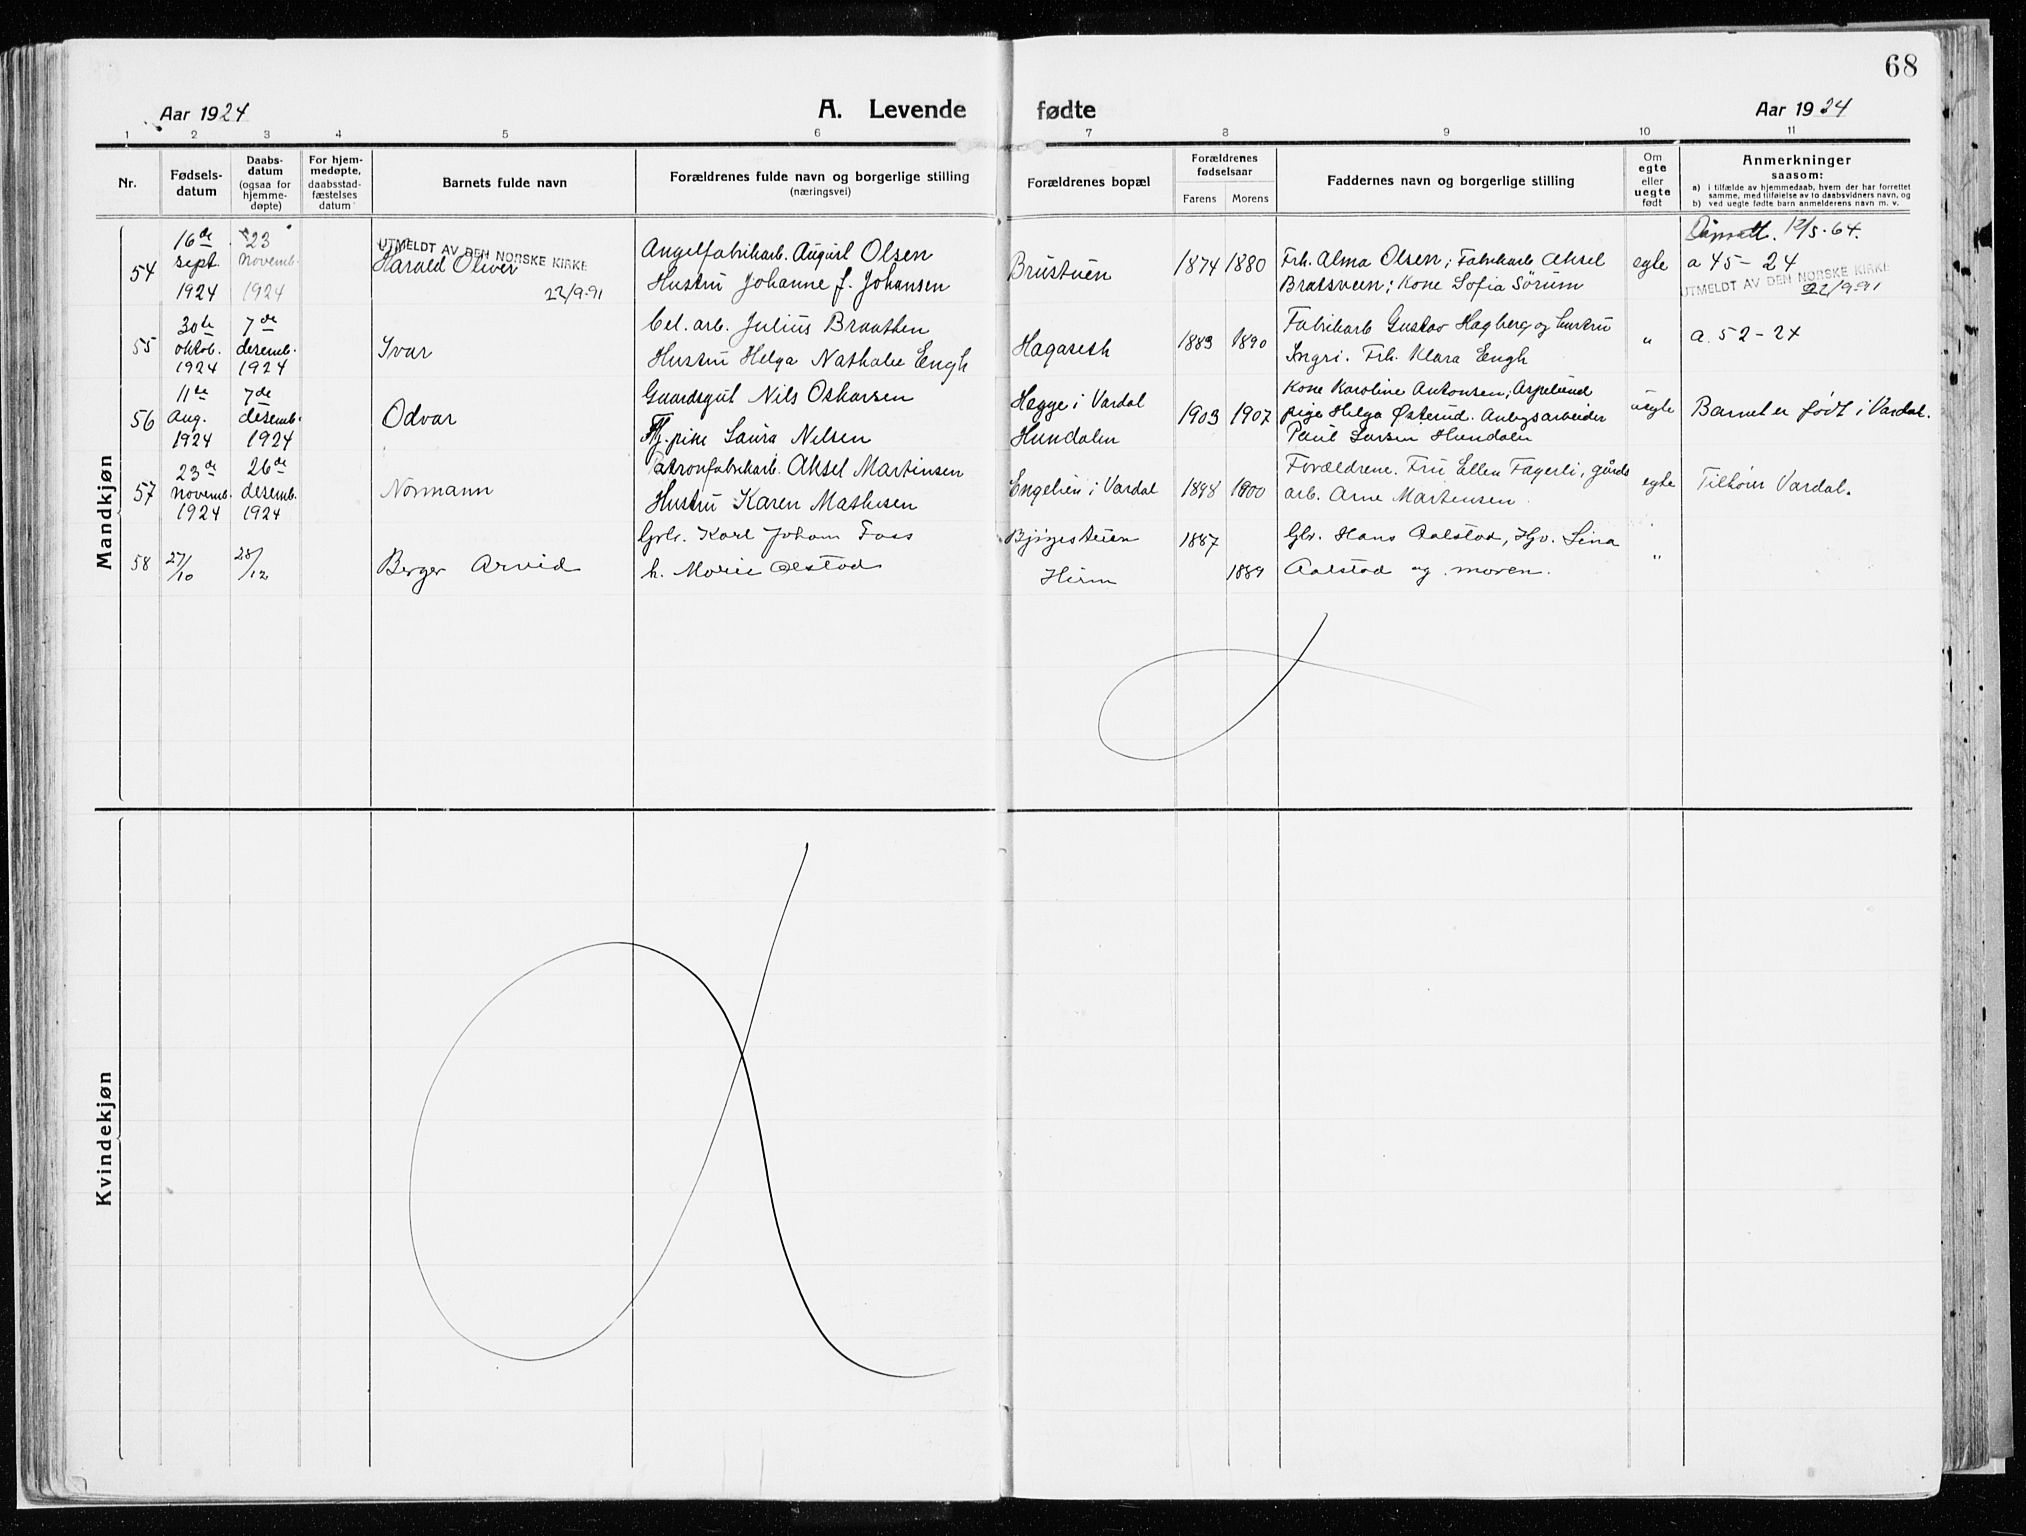 68
Aar 1924
A. Levende fødte
Aar 1924
1 2 3 4 5 6 7 8 9 10 11
Nr.
Fødsels-
datum
Daabs-
datum
(ogsaa for
hjemme-
døpte)
For hjem-
medøpte,
daabsstad-
fæstelses
datum
Barnets fulde navn
Forældrenes fulde navn og borgerlige stilling
(næringsvei)
Forældrenes bopæl
Forældrenes
fødselsaar
Farens Morens
Faddernes navn og borgerlige stilling
Om
egte
eller
uegte
født
Anmerkninger
saasom:
a) i tilfælde av hjemmedaab, hvem der har forrettet
samme, med tilføielse av to daabsvidners navn, og
b) ved uegte fødte barn anmelderens navn m. v.
Mandkjøn
54
16de
sept.
1924
23
Novemb.
1924
UTMELDT AV DEN NORSKE KIRKE
Harald Oliver
22/9-91
Angelfabrikarb. August Olsen
Hustru Johanne f. Johansen
Brustuen
1874 1880
Frk. Alma Olsen; Fabrikarb Aksel
Bratsveen; Kone Sofia Sørum
egte
12/5-64.
a 45-24
UTMELDT AV DEN NORSKE KIRKE
22/9-91
55
30te
oktob.
1924
7de
desemb.
1924
Ivar
Cel. arb. Julius Braathen
Hustru Helga Nathalie Engh
Hagaseth
1883 1890
Fabrikarb Gustav Hagberg og hustru
Ingri. Frk. Klara Engh
"
a. 52-24
56
11te
Aug.
1924
7de
desemb.
1924
Odvar
Gaardsgut Nils Oskarsen
pike Laura Nilsen
Hegge i Vardal
Hundalen
1903 1907
Kone Karoline Antonsen, Aspelund
pige Helga Østerud. Anlegsarbeider
Paul Larsen Hundalen
uegte
Barnet er født i Vardal.
57
23de
Novemb.
1924
26de
desemb.
1924
Normann
Patronfabrikarb. Aksel Martinsen
Hustru Karen Mathisen
Engelien i Vardal
1898 1900
Forældrene. Fru Ellen Fagerli, gårds
arb. Arne Martensen.
egte
Tilhører Vardal.
58
27/10
28/12
Berger Arvid
Grbr. Karl Johan Foss
h. Marie Alstad
Bjørgesteien
Hirm
1887
1889
Gbr. Hans Aalstad, Hjv. Lina
Aalstad og moren.
"
Kvindekjøn